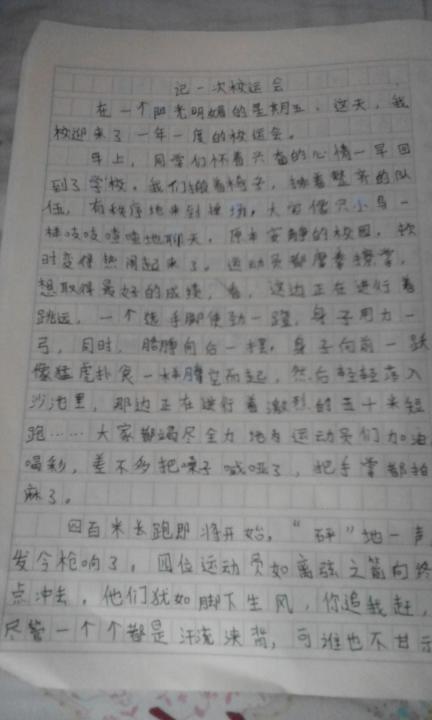 记一次校运会
在一个阳光明媚的星期五，这天，我
校迎来了一年一度的校运会。
早上，同学们怀着兴奋的心情一早回
到了学校，我们搬着椅子，排着整齐的队
伍，有秩序地来到操场，大家像只小鸟一
样吱吱喳喳地聊天，原本安静的校园，我
时变得热闹起来了。运动员都摩拳擦掌，
想取得最好的成绩，看，这边正在进行着
跳远，一个选手脚使劲一蹬，身子用力一
弓，同时，胳膊向后一摆，身子向前一跃
像猛虎扑食一样腾空而起，然后轻轻落入
沙池里，那边正在进行着激烈的五十米短
跑……大家都竭尽全力地为运动员们加油
喝彩，差不多把嗓子喊哑了，把手掌都拍
麻了。
四百米长跑即将开始，“砰”地一声
发令枪响了，四位运动员如离弦之箭向终
点冲去，他们犹如脚下生风，你追我赶，
尽管一个个都是汗流浃背，可谁也不甘示